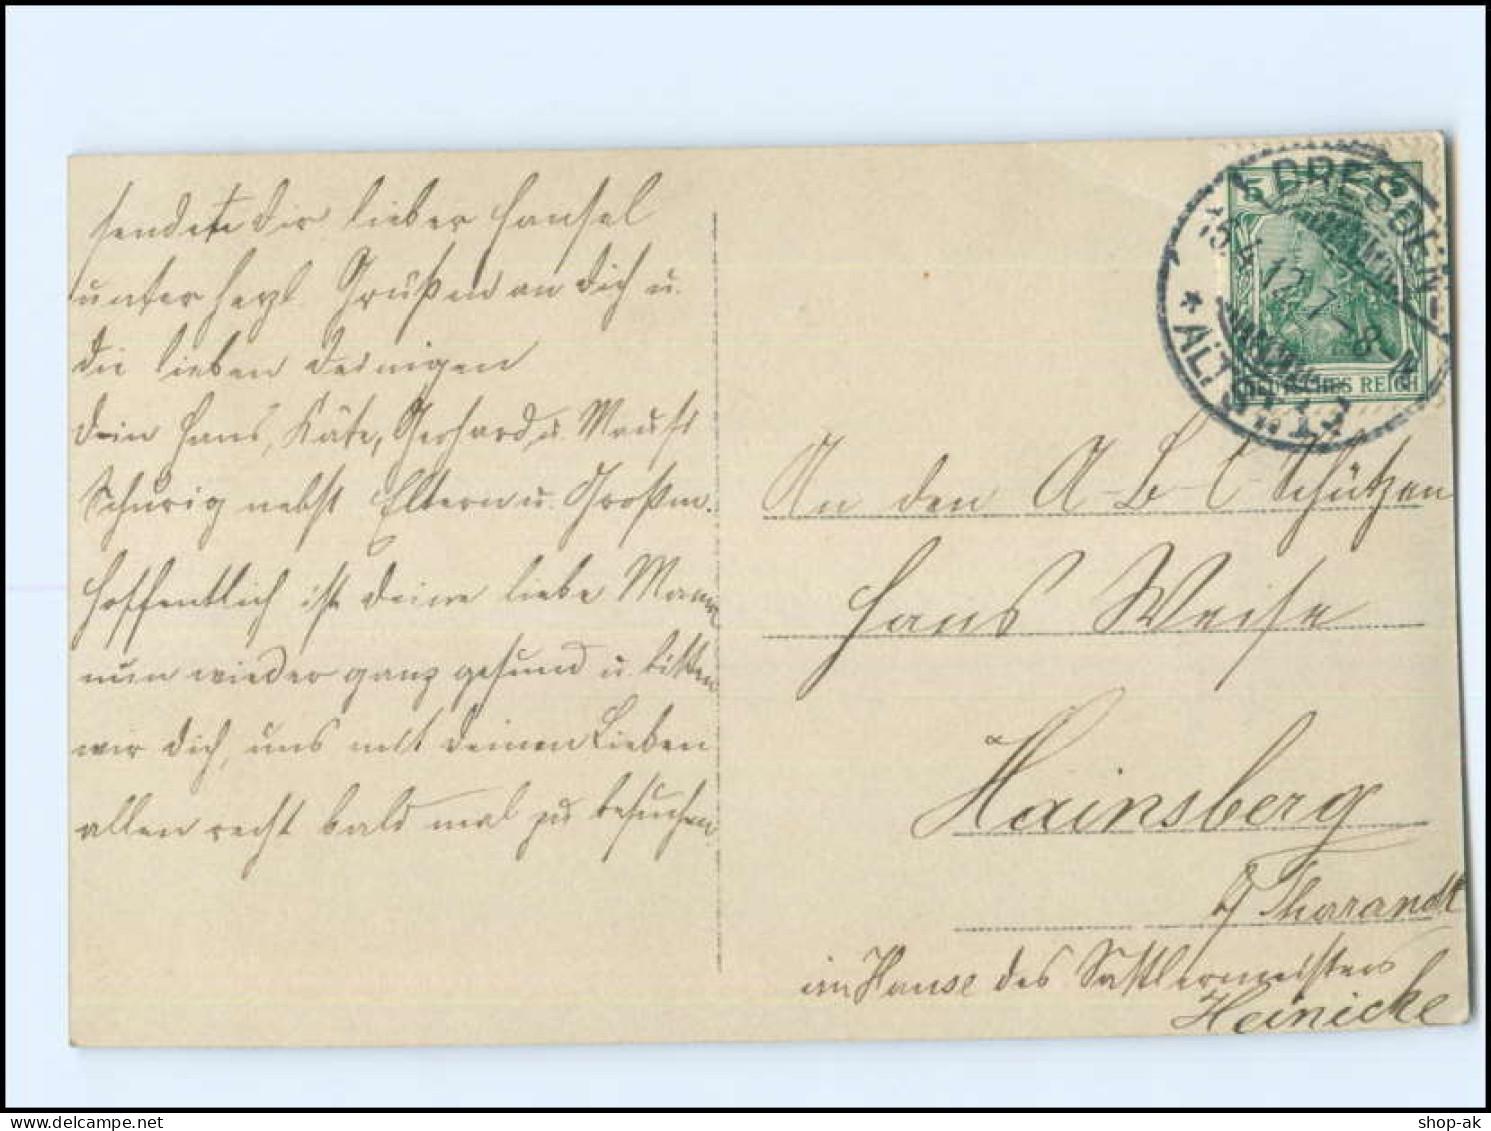 sendet Dir lieber Hansel
unter herzl. Grüßen an Dich u.
die lieben Deinigen
Dein Hans, Käte, Gerhard u.
Schurig nebst Eltern u. Großm.
Hoffentlich ist deine liebe Mama
nun wieder ganz gesund u. bitten
wir dich, uns mit deinen Lieben
allen recht bald mal zu besuchen.
5
DRESDEN-
15.4.12.7-8 N
* ALTST.
DEUTSCHES REICH
An den A-B-C-Schützen
Hans Weise
Hainsberg
b/ Tharandt
im Hause des Sattlermeisters
Heinicke
shop-ak